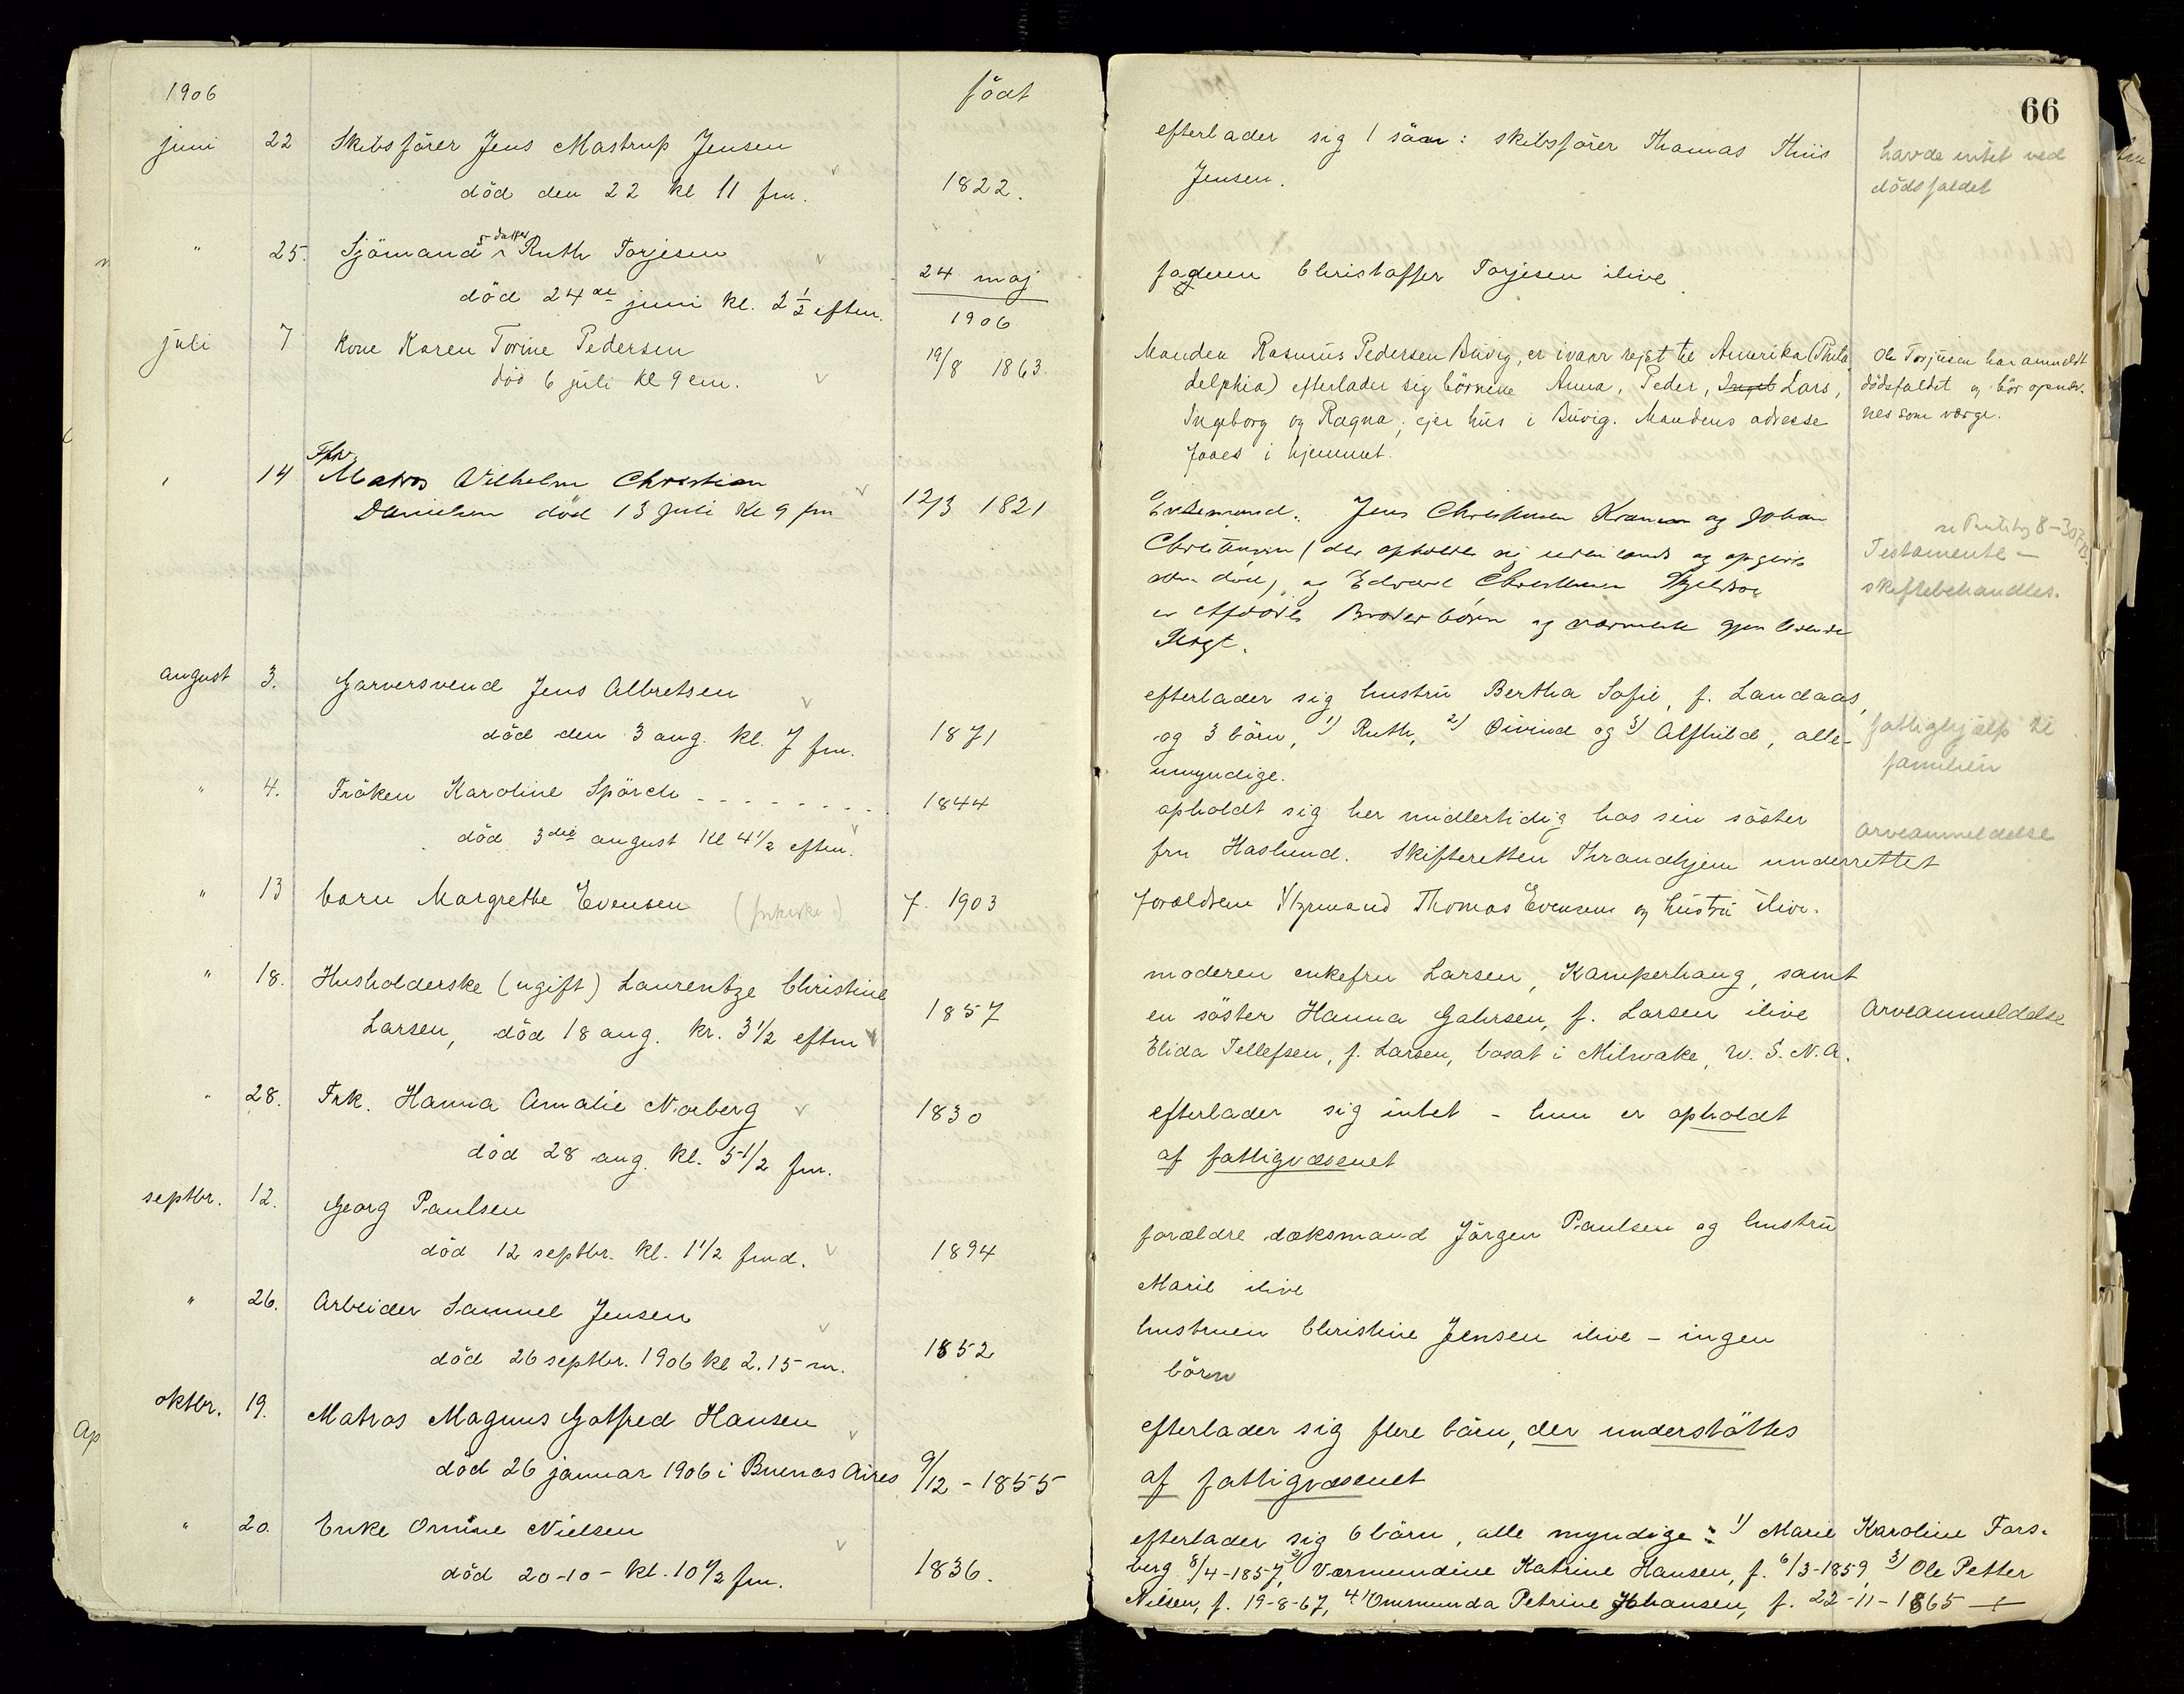 1906 födt
66
juni 22 Skibsförer Jens Mastrup Jensen
död den 22 kl 11 fm. 1822.
efterlader sig 1 sön: skibsförer Thomas Thiis
Jensen.
havde intet ved
dödsfaldet
" 25. Sjömands datter Ruth Torjesen
död 24de juni kl. 2 1/2 eftm.
24 maj
1906
faderen Christoffer Torjesen ilive
juli 7 Kone Karen Torine Pedersen
död 6 juli kl 9 em. 19/8 1863.
Manden Rasmus Pedersen Buvig, er ivaar rejst til Amerika (Phila
delphia) efterlader sig börnene Anna, Peder, Lars,
Ingeborg og Ragna, ejer hus i Buvig. Mandens adresse
faaes i hjemmet.
Ole Torjusen har anmeldt
dödsfaldet og bör opnæv-
nes som værge.
14 Fhv. Matros Vilhelm Christian
Danielsen död 13 Juli Kl 9 fm 12/3 1821
Enkemand. Jens Christensen og Johan
Christensen (der opholder sig udenlands og opgives
død) og Edvard Christensen
er Afdødes Broderbørn og nærmeste gjenlevende
Slægt.
Testamente —
skiftebehandles.
august 3. Garversvend Jens Albretsen
död den 3 aug. kl. 7 fm. 1871
efterlader sig hustru Bertha Sofie, f. Landaas,
og 3 börn, 1) Ruth, 2) Öivind og 3) Alfhild, alle
umyndige.
fattighjælp til
familien
" 4. Fröken Karoline Spörck - - - - - - - - 1844
död 3die august Kl 4 1/2 eftm.
opholdt sig her midlertidig hos sin söster
fru Haslund. Skifteretten Thrandhjem underrettet
arveanmeldelse
" 13 barn Margrethe Evensen f. 1903
forældrene Styrmand Thomas Evensen og hustru ilive.
" 18. Husholderske (ugift) Laurentze Christine
Larsen, död 18 aug. kr. 3 1/2 eftm 1857
moderen enkefru Larsen, Kamperhaug, samt
en söster Hanna Gahrsen, f. Larsen ilive
Elida Tellefsen, f. Larsen, bosat i Milwake, U. S. N. A.
Arveanmeldelse
" 28. Frk. Hanna Amalie Norberg 1830
död 28 aug. kl. 5 1/2 fm.
efterlader sig intet - hun er opholdt
af fattigvæsenet
septbr. 12. Georg Paulsen
död 12 septbr. kl. 1 1/2 fmd. 1894
forældre dæksmand Jörgen Paulsen og hustru
Marie ilive
" 26. Arbeider Samuel Jensen
död 26 septbr. 1906 kl 2.15 m. 1852
hustruen Christine Jensen ilive - ingen
börn
oktbr. 19. Matros Magnus Gotfred Hansen
död 26 januar 1906 i Buenos Aires 9/12 - 1855
efterlader sig flere börn, der understöttes
af fattigvæsenet
Ap
" 20. Enke Omine Nielsen
död 20-10- kl. 10 1/2 fm. 1836.
efterlader sig 6 börn, alle myndige: 1) Marie Karoline Fors-
berg 8/4-1857, 2) Værmundine Katrine Hansen, f. 6/3-1859, 3) Ole Petter
Nilsen, f. 19-8-67, 4) Ommunda Petrine Johansen, f. 22-11-1865 +